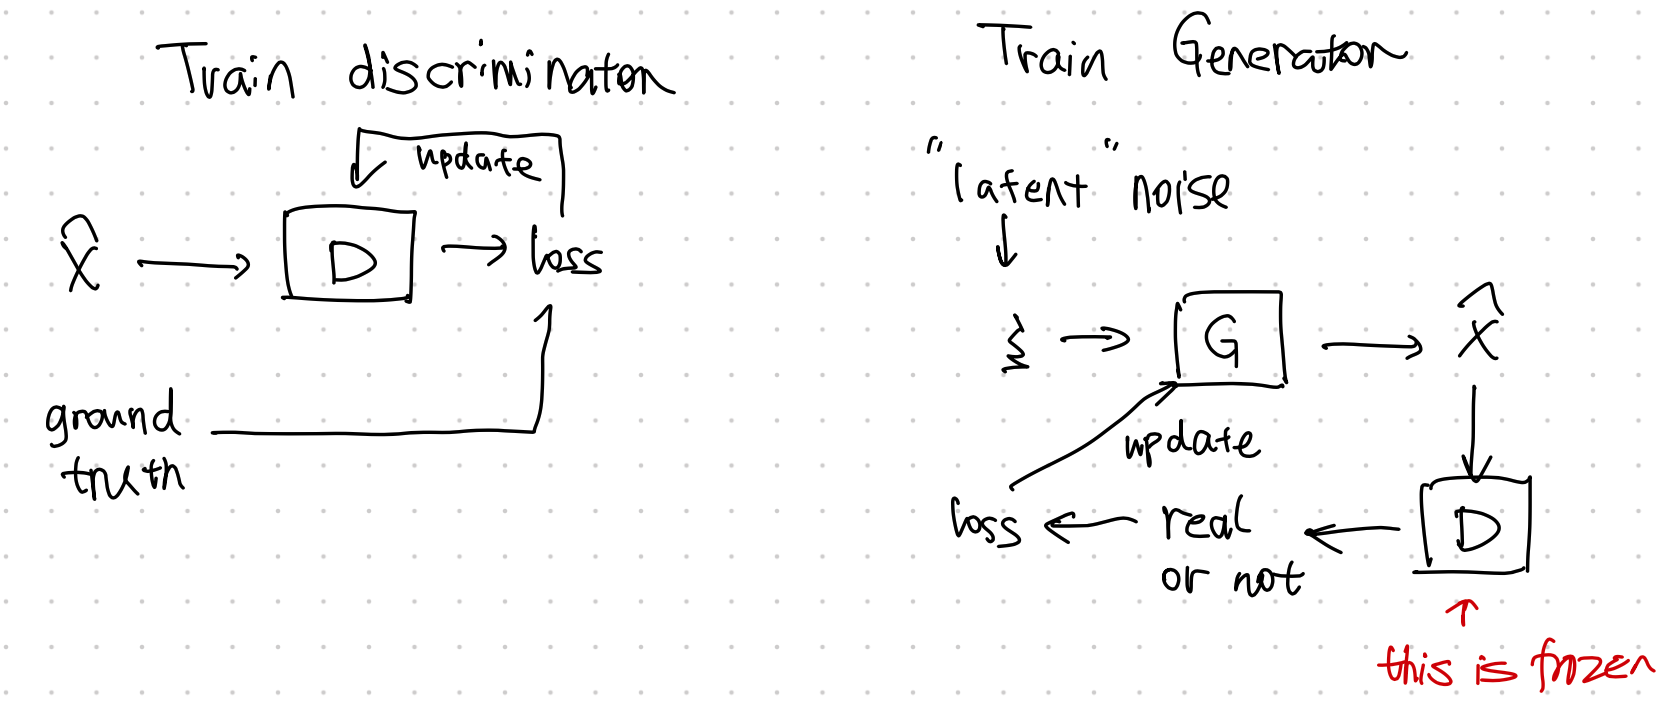 Train discriminator
update
x̂
D
loss
ground
truth
Train Generator
"latent" noise
ξ
G
x̂
update
loss
real
or not
D
this is frozen